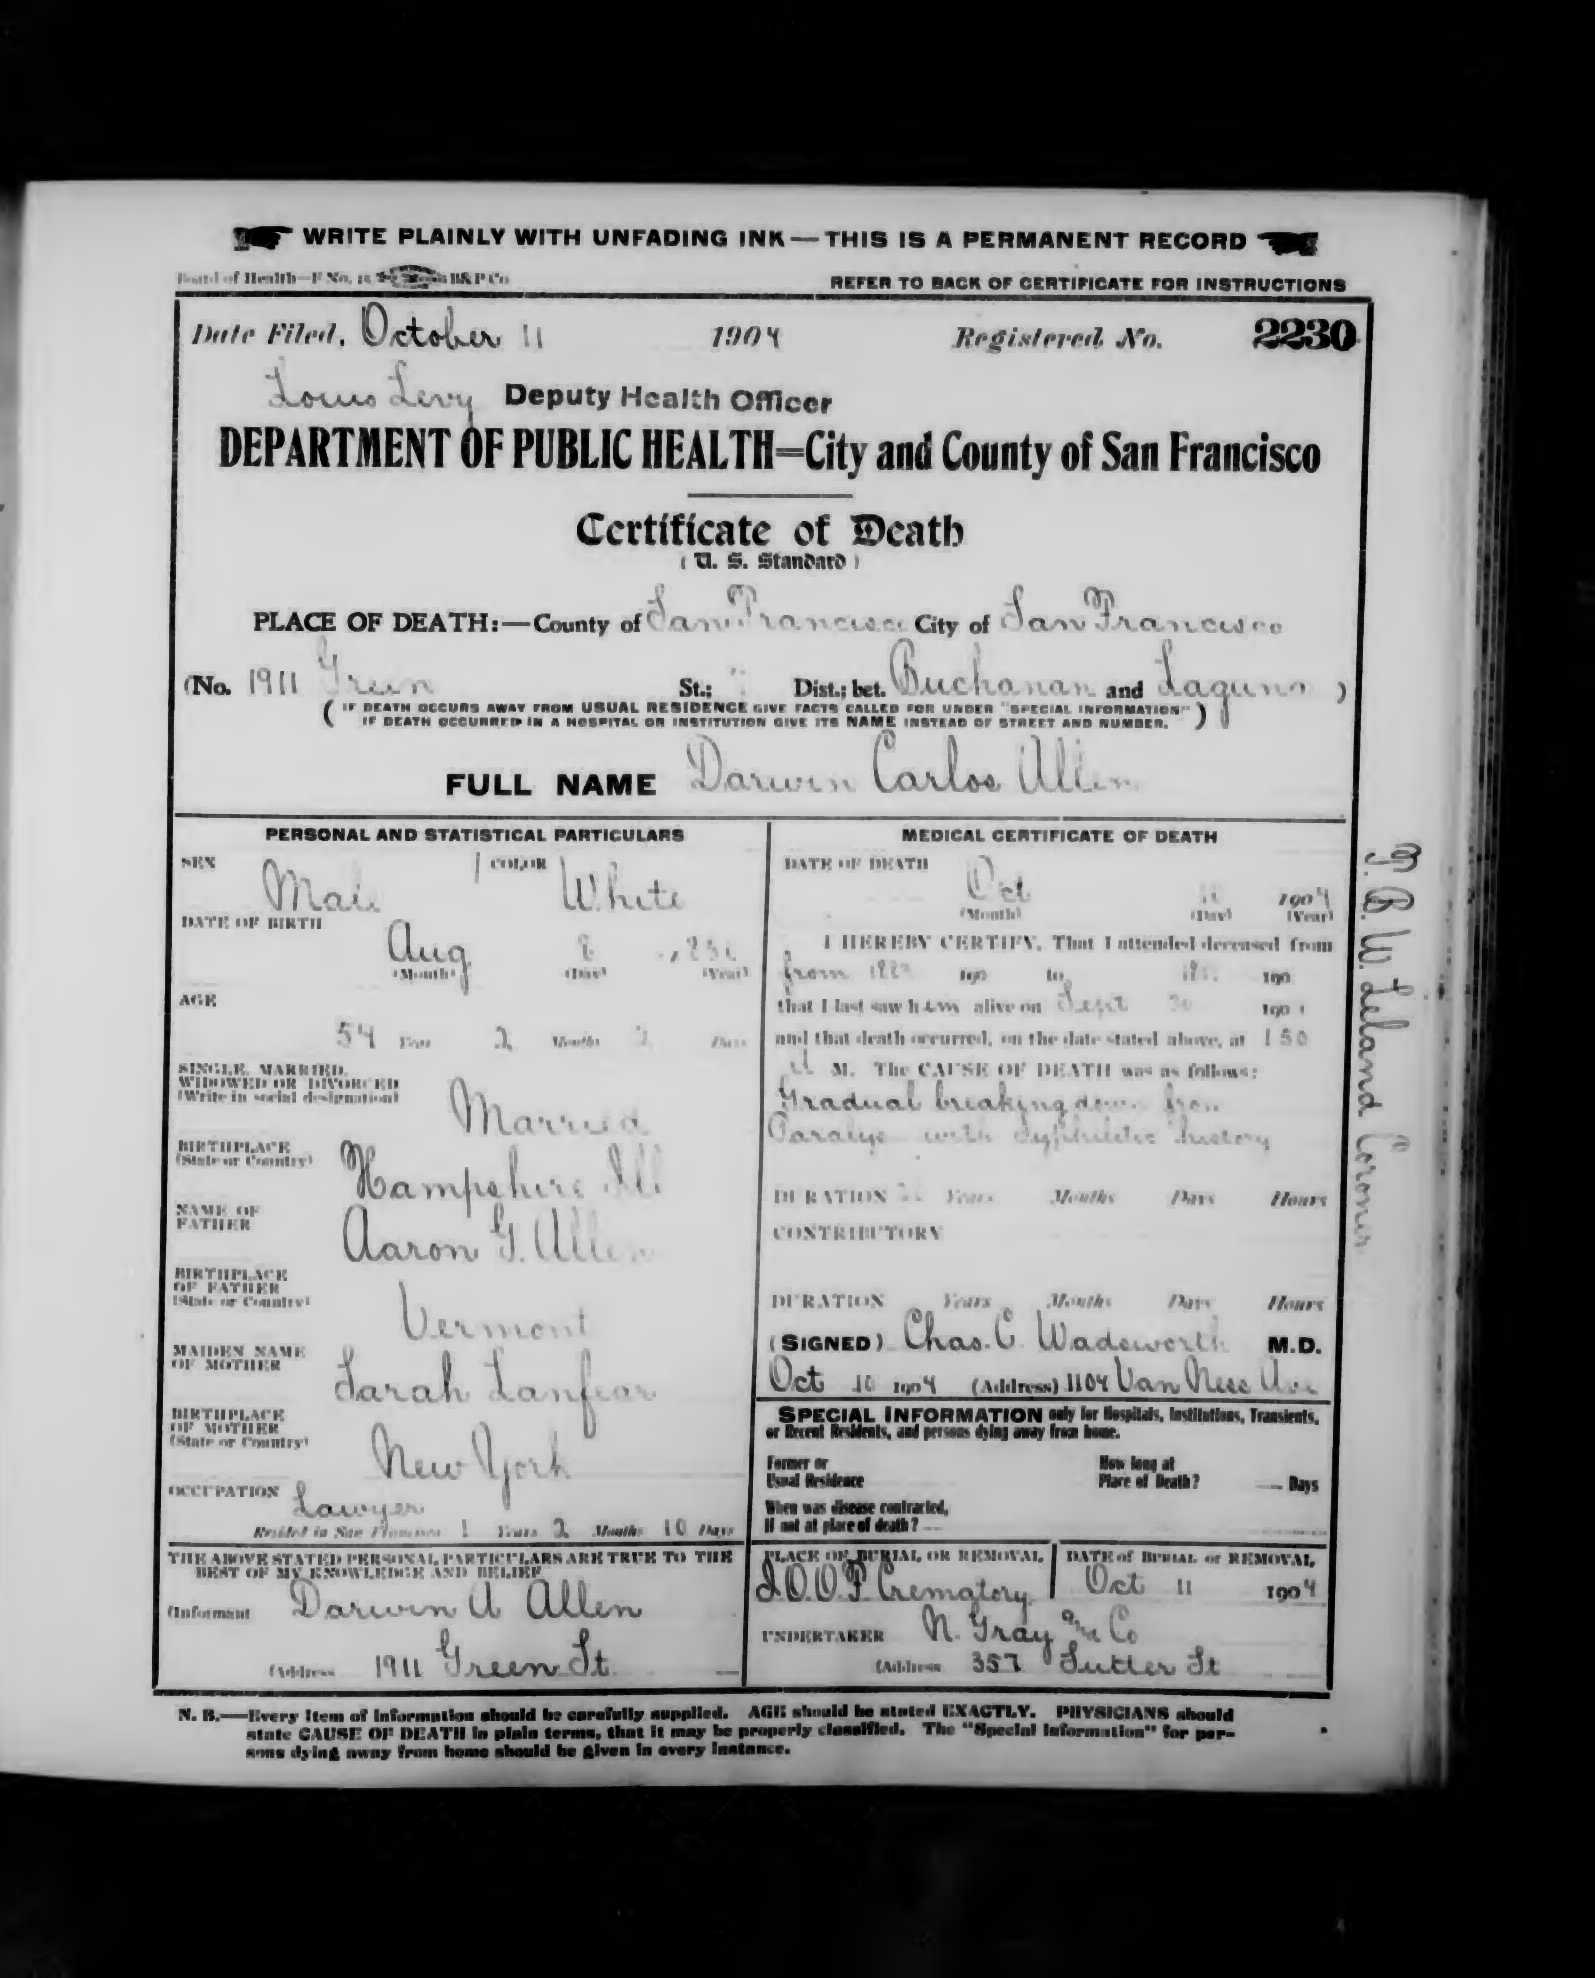 WRITE PLAINLY WITH UNFADING INK — THIS IS A PERMANENT RECORD
Board of Health—F No. B&P Co
REFER TO BACK OF CERTIFICATE FOR INSTRUCTIONS
Date Filed, October 11 1904 Registered No. 2230
Louis Levy Deputy Health Officer
DEPARTMENT OF PUBLIC HEALTH=City and County of San Francisco
Certificate of Death
(U. S. Standard)
PLACE OF DEATH:—County of San Francisco City of San Francisco
(No. 1911 Green St.; Dist.; bet. Buchanan and Laguna )
( IF DEATH OCCURS AWAY FROM USUAL RESIDENCE GIVE FACTS CALLED FOR UNDER "SPECIAL INFORMATION"
IF DEATH OCCURRED IN A HOSPITAL OR INSTITUTION GIVE ITS NAME INSTEAD OF STREET AND NUMBER. )
FULL NAME Darwin Carlos Allen
PERSONAL AND STATISTICAL PARTICULARS
SEX Male COLOR White
DATE OF BIRTH
Aug 8
(Month) (Day) (Year)
AGE
54 Years 2 Months 2 Days
SINGLE, MARRIED,
WIDOWED OR DIVORCED
(Write in social designation)
Married
BIRTHPLACE
(State or Country)
Hampshire Ill
NAME OF
FATHER
Aaron G. Allen
BIRTHPLACE
OF FATHER
(State or Country)
Vermont
MAIDEN NAME
OF MOTHER
Sarah Lanfear
BIRTHPLACE
OF MOTHER
(State or Country)
New York
OCCUPATION Lawyer
Resided in San Francisco 1 Years 2 Months 10 Days
THE ABOVE STATED PERSONAL PARTICULARS ARE TRUE TO THE
BEST OF MY KNOWLEDGE AND BELIEF
(Informant Darwin A Allen
(Address 1911 Green St.
MEDICAL CERTIFICATE OF DEATH
DATE OF DEATH
Oct 10 1904
(Month) (Day) (Year)
I HEREBY CERTIFY, That I attended deceased from
from 190 to 190
that I last saw him alive on Sept 30 190
and that death occurred, on the date stated above, at 1 50
M. The CAUSE OF DEATH was as follows:
Gradual breaking down from
with syphilitic history
DURATION Years Months Days Hours
CONTRIBUTORY
DURATION Years Months Days Hours
(SIGNED) Chas. C. Wadsworth M.D.
Oct 10 1904 (Address) 1104 Van Ness Ave
SPECIAL INFORMATION only for Hospitals, Institutions, Transients,
or Recent Residents, and persons dying away from home.
Former or
Usual Residence
How long at
Place of Death? Days
When was disease contracted,
If not at place of death?
PLACE OF BURIAL OR REMOVAL
I.O.O.F. Crematory
DATE of BURIAL or REMOVAL
Oct 11 1904
UNDERTAKER N. Gray and Co
(Address 357 Sutter St
T. B. W. Leland Coroner
N. B.—Every item of information should be carefully supplied. AGE should be stated EXACTLY. PHYSICIANS should
state CAUSE OF DEATH in plain terms, that it may be properly classified. The "Special Information" for per-
sons dying away from home should be given in every instance.